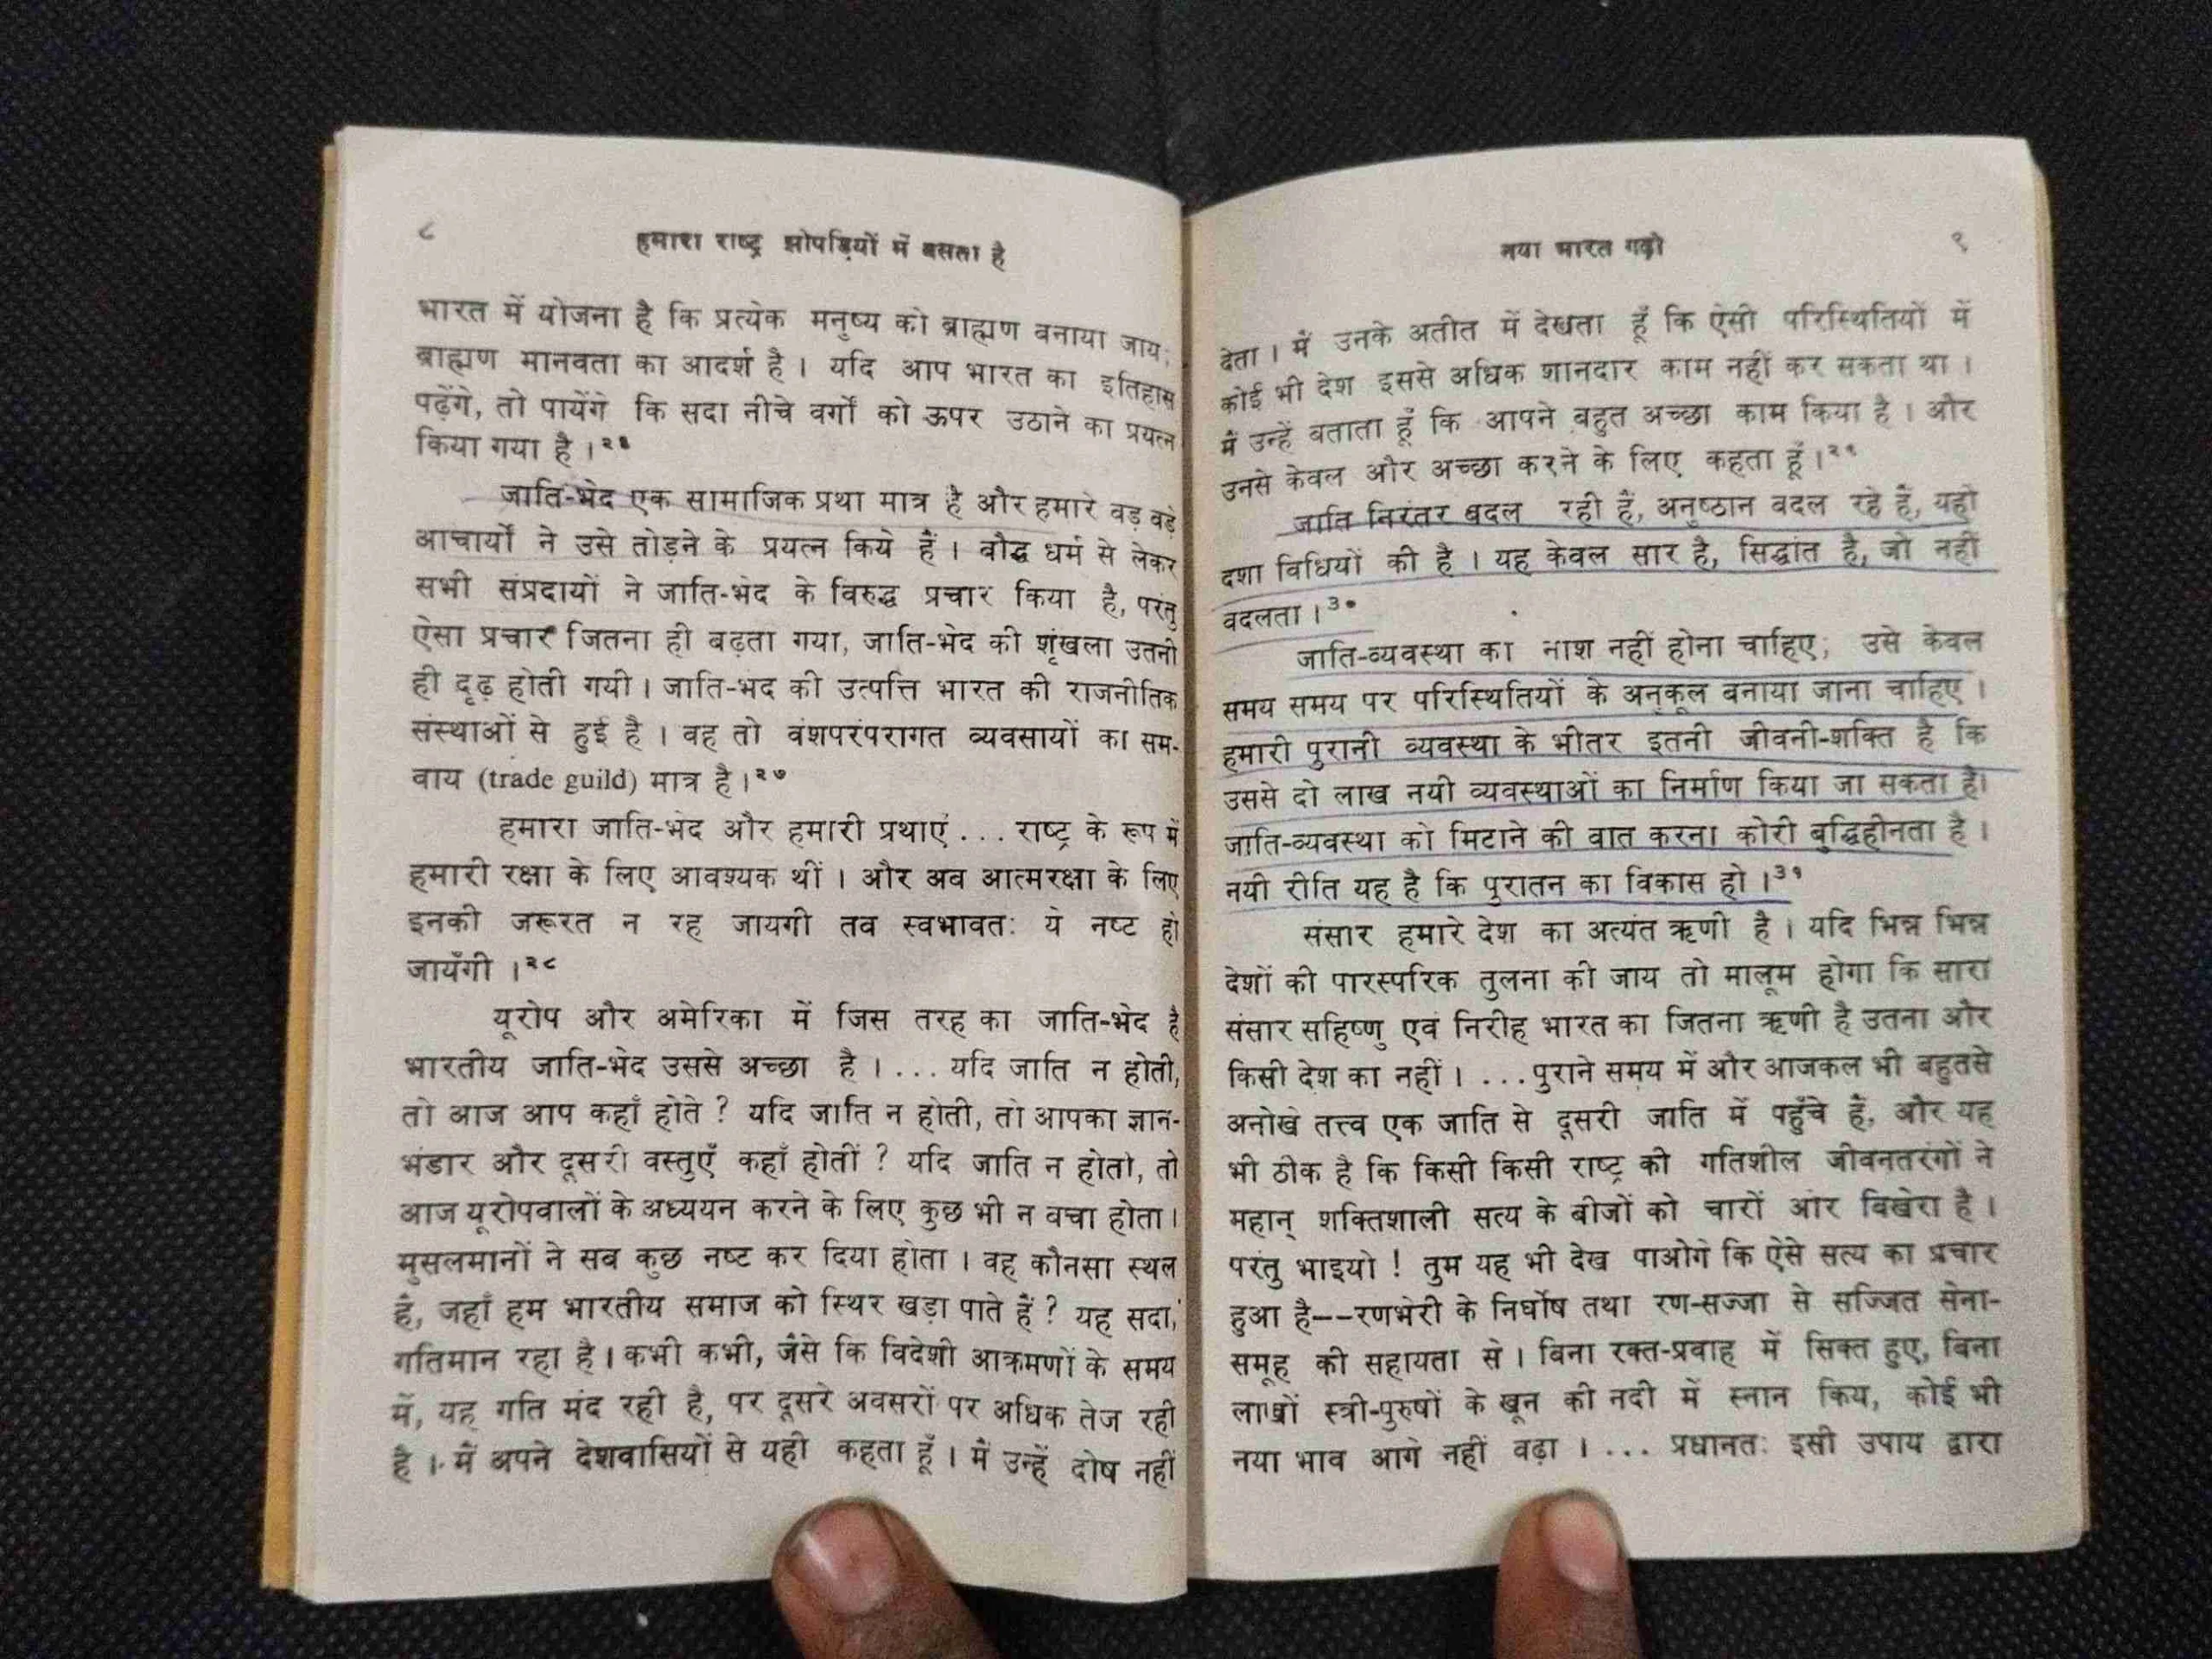 ८
हमारा राष्ट्र झोपड़ियों में बसता है
भारत में योजना है कि प्रत्येक मनुष्य को ब्राह्मण बनाया जाय;
ब्राह्मण मानवता का आदर्श है । यदि आप भारत का इतिहास
पढ़ेंगे, तो पायेंगे कि सदा नीचे वर्गों को ऊपर उठाने का प्रयत्न
किया गया है ।२६
जाति-भेद एक सामाजिक प्रथा मात्र है और हमारे बड़े बड़े
आचार्यों ने उसे तोड़ने के प्रयत्न किये हैं । बौद्ध धर्म से लेकर
सभी संप्रदायों ने जाति-भेद के विरुद्ध प्रचार किया है, परंतु
ऐसा प्रचार जितना ही बढ़ता गया, जाति-भेद की शृंखला उतनी
ही दृढ़ होती गयी । जाति-भेद की उत्पत्ति भारत की राजनीतिक
संस्थाओं से हुई है । वह तो वंशपरंपरागत व्यवसायों का सम-
वाय (trade guild) मात्र है ।२७
हमारा जाति-भेद और हमारी प्रथाएं ... राष्ट्र के रूप में
हमारी रक्षा के लिए आवश्यक थीं । और अब आत्मरक्षा के लिए
इनकी जरूरत न रह जायगी तब स्वभावतः ये नष्ट हो
जायँगी ।२८
यूरोप और अमेरिका में जिस तरह का जाति-भेद है
भारतीय जाति-भेद उससे अच्छा है । ... यदि जाति न होती,
तो आज आप कहाँ होते ? यदि जाति न होती, तो आपका ज्ञान-
भंडार और दूसरी वस्तुएँ कहाँ होतीं ? यदि जाति न होती, तो
आज यूरोपवालों के अध्ययन करने के लिए कुछ भी न बचा होता ।
मुसलमानों ने सब कुछ नष्ट कर दिया होता । वह कौनसा स्थल
है, जहाँ हम भारतीय समाज को स्थिर खड़ा पाते हैं ? यह सदा
गतिमान रहा है । कभी कभी, जैसे कि विदेशी आक्रमणों के समय
में, यह गति मंद रही है, पर दूसरे अवसरों पर अधिक तेज रही
है । मैं अपने देशवासियों से यही कहता हूँ । मैं उन्हें दोष नहीं
नया भारत गढ़ो
९
देता । मैं उनके अतीत में देखता हूँ कि ऐसी परिस्थितियों में
कोई भी देश इससे अधिक शानदार काम नहीं कर सकता था ।
मैं उन्हें बताता हूँ कि आपने बहुत अच्छा काम किया है । और
उनसे केवल और अच्छा करने के लिए कहता हूँ ।२९
जाति निरंतर बदल रही है, अनुष्ठान बदल रहे हैं, यही
दशा विधियों की है । यह केवल सार है, सिद्धांत है, जो नहीं
बदलता ।३०
जाति-व्यवस्था का नाश नहीं होना चाहिए; उसे केवल
समय समय पर परिस्थितियों के अनुकूल बनाया जाना चाहिए ।
हमारी पुरानी व्यवस्था के भीतर इतनी जीवनी-शक्ति है कि
उससे दो लाख नयी व्यवस्थाओं का निर्माण किया जा सकता है।
जाति-व्यवस्था को मिटाने की बात करना कोरी बुद्धिहीनता है ।
नयी रीति यह है कि पुरातन का विकास हो ।३१
संसार हमारे देश का अत्यंत ऋणी है । यदि भिन्न भिन्न
देशों की पारस्परिक तुलना की जाय तो मालूम होगा कि सारा
संसार सहिष्णु एवं निरीह भारत का जितना ऋणी है उतना और
किसी देश का नहीं । ... पुराने समय में और आजकल भी बहुतसे
अनोखे तत्त्व एक जाति से दूसरी जाति में पहुँचे हैं, और यह
भी ठीक है कि किसी किसी राष्ट्र की गतिशील जीवनतरंगों ने
महान् शक्तिशाली सत्य के बीजों को चारों ओर बिखेरा है ।
परंतु भाइयो ! तुम यह भी देख पाओगे कि ऐसे सत्य का प्रचार
हुआ है--रणभेरी के निर्घोष तथा रण-सज्जा से सज्जित सेना-
समूह की सहायता से । बिना रक्त-प्रवाह में सिक्त हुए, बिना
लाखों स्त्री-पुरुषों के खून की नदी में स्नान किये, कोई भी
नया भाव आगे नहीं बढ़ा । ... प्रधानतः इसी उपाय द्वारा